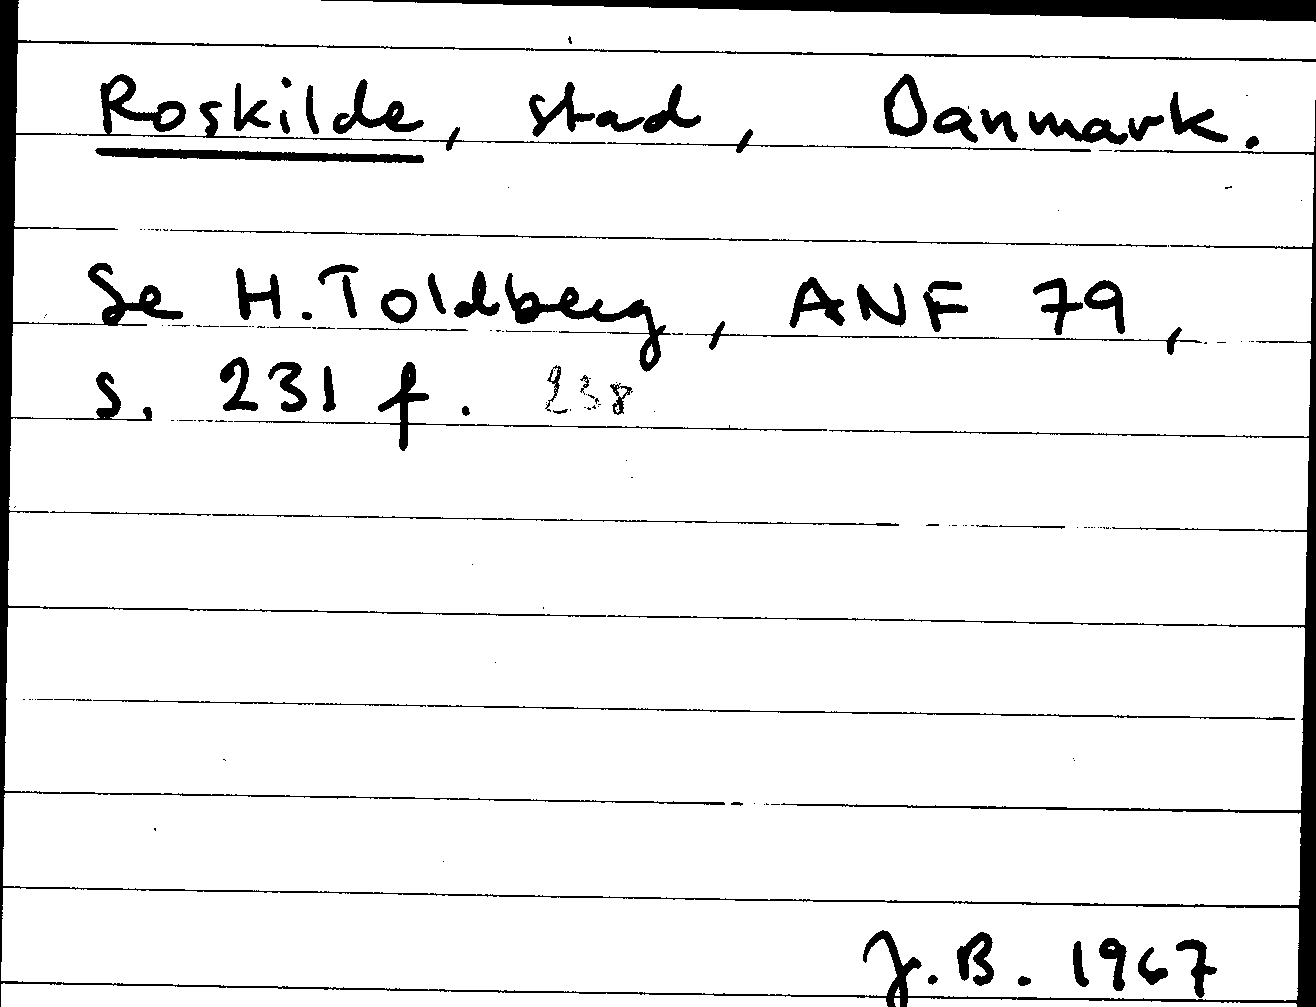 Roskilde, stad, Danmark.
Se H. Toldberg, ANF 79,
s. 231 f. 238
J.B. 1967